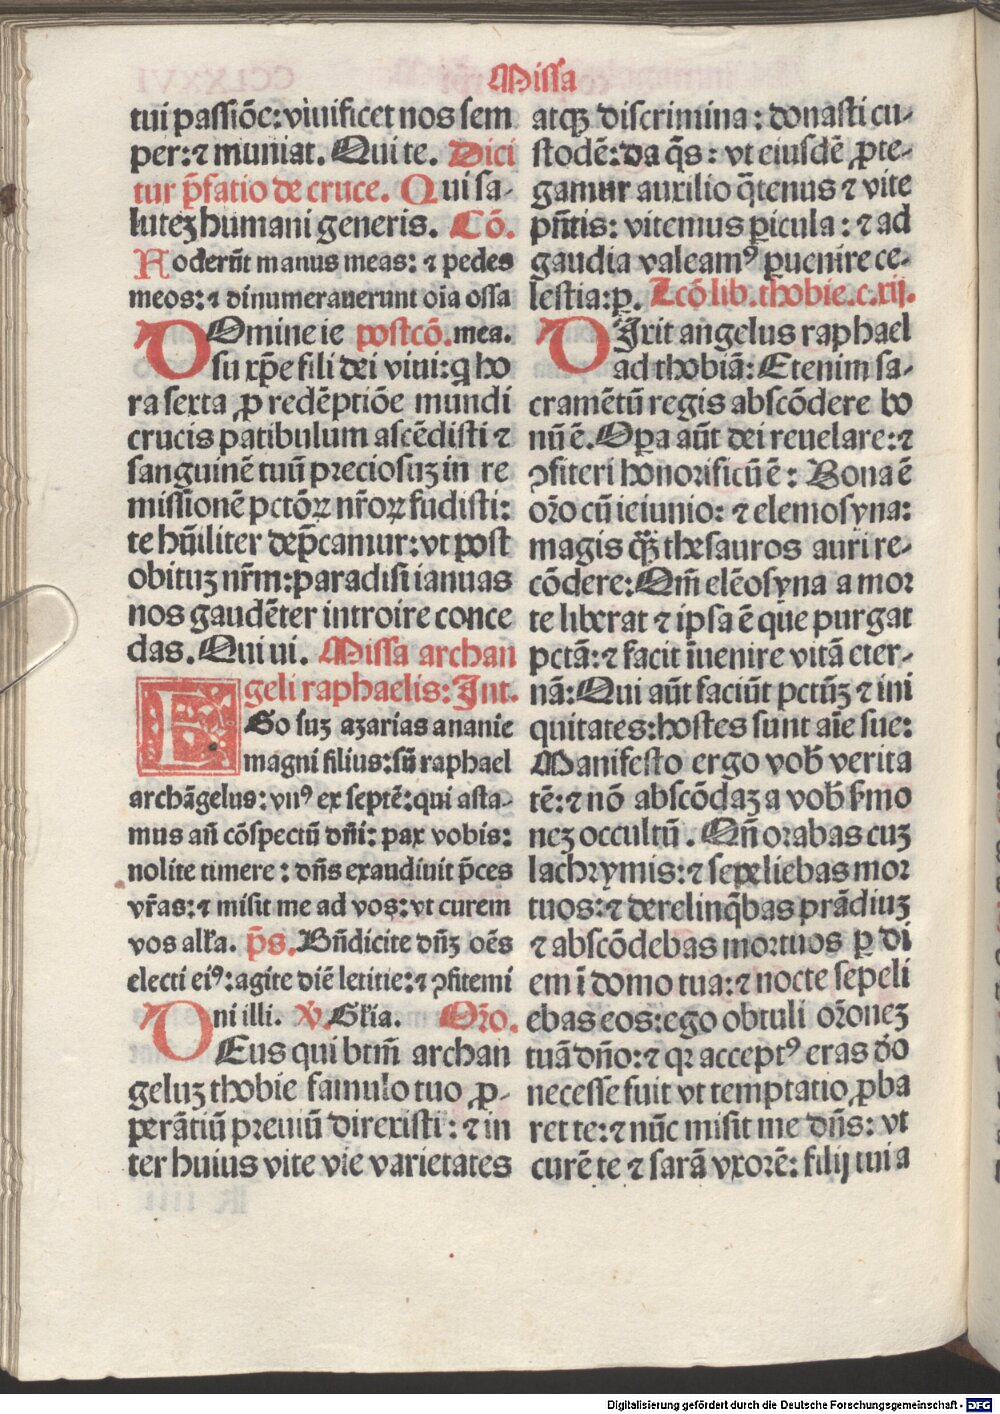 Missa
tui passiōe: viuificet nos sem
per: ⁊ muniat. Qui te. Dici
tur p̄fatio de cruce. Qui sa-
luteꝫ humani generis. Cō.
Foderūt manus meas: ⁊ pedes
meos: ⁊ dinumerauerunt oīa ossa
DOmine ie postcō. mea.
su xp̄e fili dei viui: q ho
ra sexta ꝓ redēptiōe mundi
crucis patibulum ascēdisti ⁊
sanguinē tuū preciosuꝫ in re
missionē pctōꝝ nr̄oꝝ fudisti:
te hūiliter dep̄camur: vt post
obituꝫ nr̄m: paradisi ianuas
nos gaudēter introire conce
das. Qui ui. Missa archan
geli raphaelis: Int.
EGo suꝫ azarias ananie
magni filius: sū raphael
archāgelus: vnꝰ ex septē: qui asta-
mus añ cōspectū dñi: pax vobis:
nolite timere: dñs exaudiuit p̄ces
vr̄as: ⁊ misit me ad vos: vt curem
vos alľa. p̄s. Bñdicite dñꝫ oēs
electi eiꝰ: agite diē letitie: ⁊ ꝯfitemi
ni illi. ℣. Glīa. Orō.
DEus qui btm̄ archan
geluꝫ thobie famulo tuo ꝓ-
perātiū preuiū direxisti: ⁊ in
ter huius vite vie varietates
atqꝫ discrimina: donasti cu-
stodē: da q̄s: vt eiusdē ꝓte-
gamur auxilio q̄tenus ⁊ vite
pñtis: vitemus ꝑicula: ⁊ ad
gaudia valeamꝰ ꝑuenire ce-
lestia: ꝑ. Lcō lib. thobie. c. xij.
DIxit angelus raphael
ad thobiā: Etenim sa-
cramētū regis abscōdere bo
nū ē. Oꝑa aūt dei reuelare: ⁊
ꝯfiteri honorificū ē: Bona ē
orō cū ieiunio: ⁊ elemosyna:
magis q̄ꝫ thesauros auri re-
cōdere: Qm̄ elēosyna a mor
te liberat ⁊ ipsa ē que purgat
pctā: ⁊ facit īuenire vitā eter-
nā: Qui aūt faciūt pctūꝫ ⁊ ini
quitates: hostes sunt aīe sue:
Manifesto ergo vob̄ verita
tē: ⁊ nō abscōdaꝫ a vob̄ s̄rmo
neꝫ occultū. Qñ orabas cuꝫ
lachrymis: ⁊ sepeliebas mor
tuos: ⁊ derelinq̄bas prādiuꝫ
⁊ abscōdebas mortuos ꝑ di
em ī domo tua: ⁊ nocte sepeli
ebas eos: ego obtuli orōneꝫ
tuā dño: ⁊ qꝛ acceptꝰ eras dō
necesse fuit vt temptatio ꝓba
ret te: ⁊ nūc misit me dñs: vt
curē te ⁊ sarā vxorē: filij tui a
Digitalisierung gefördert durch die Deutsche Forschungsgemeinschaft - DFG